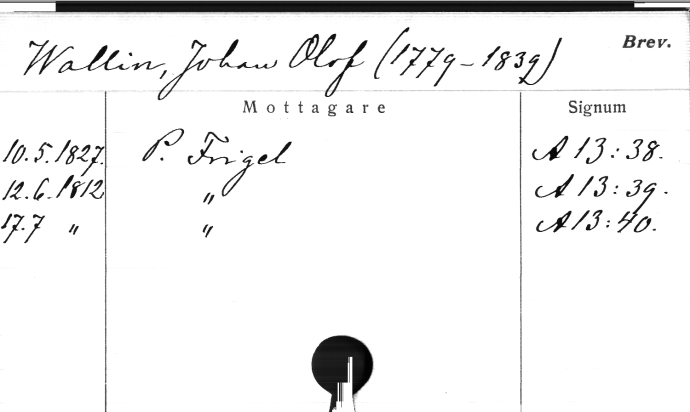 Wallin, Johan Olof (1779-1839) Brev.
Mottagare Signum
10.5.1827. P. Frigel A 13:38.
12.6.1812 " A 13:39.
17.7 " " A 13:40.